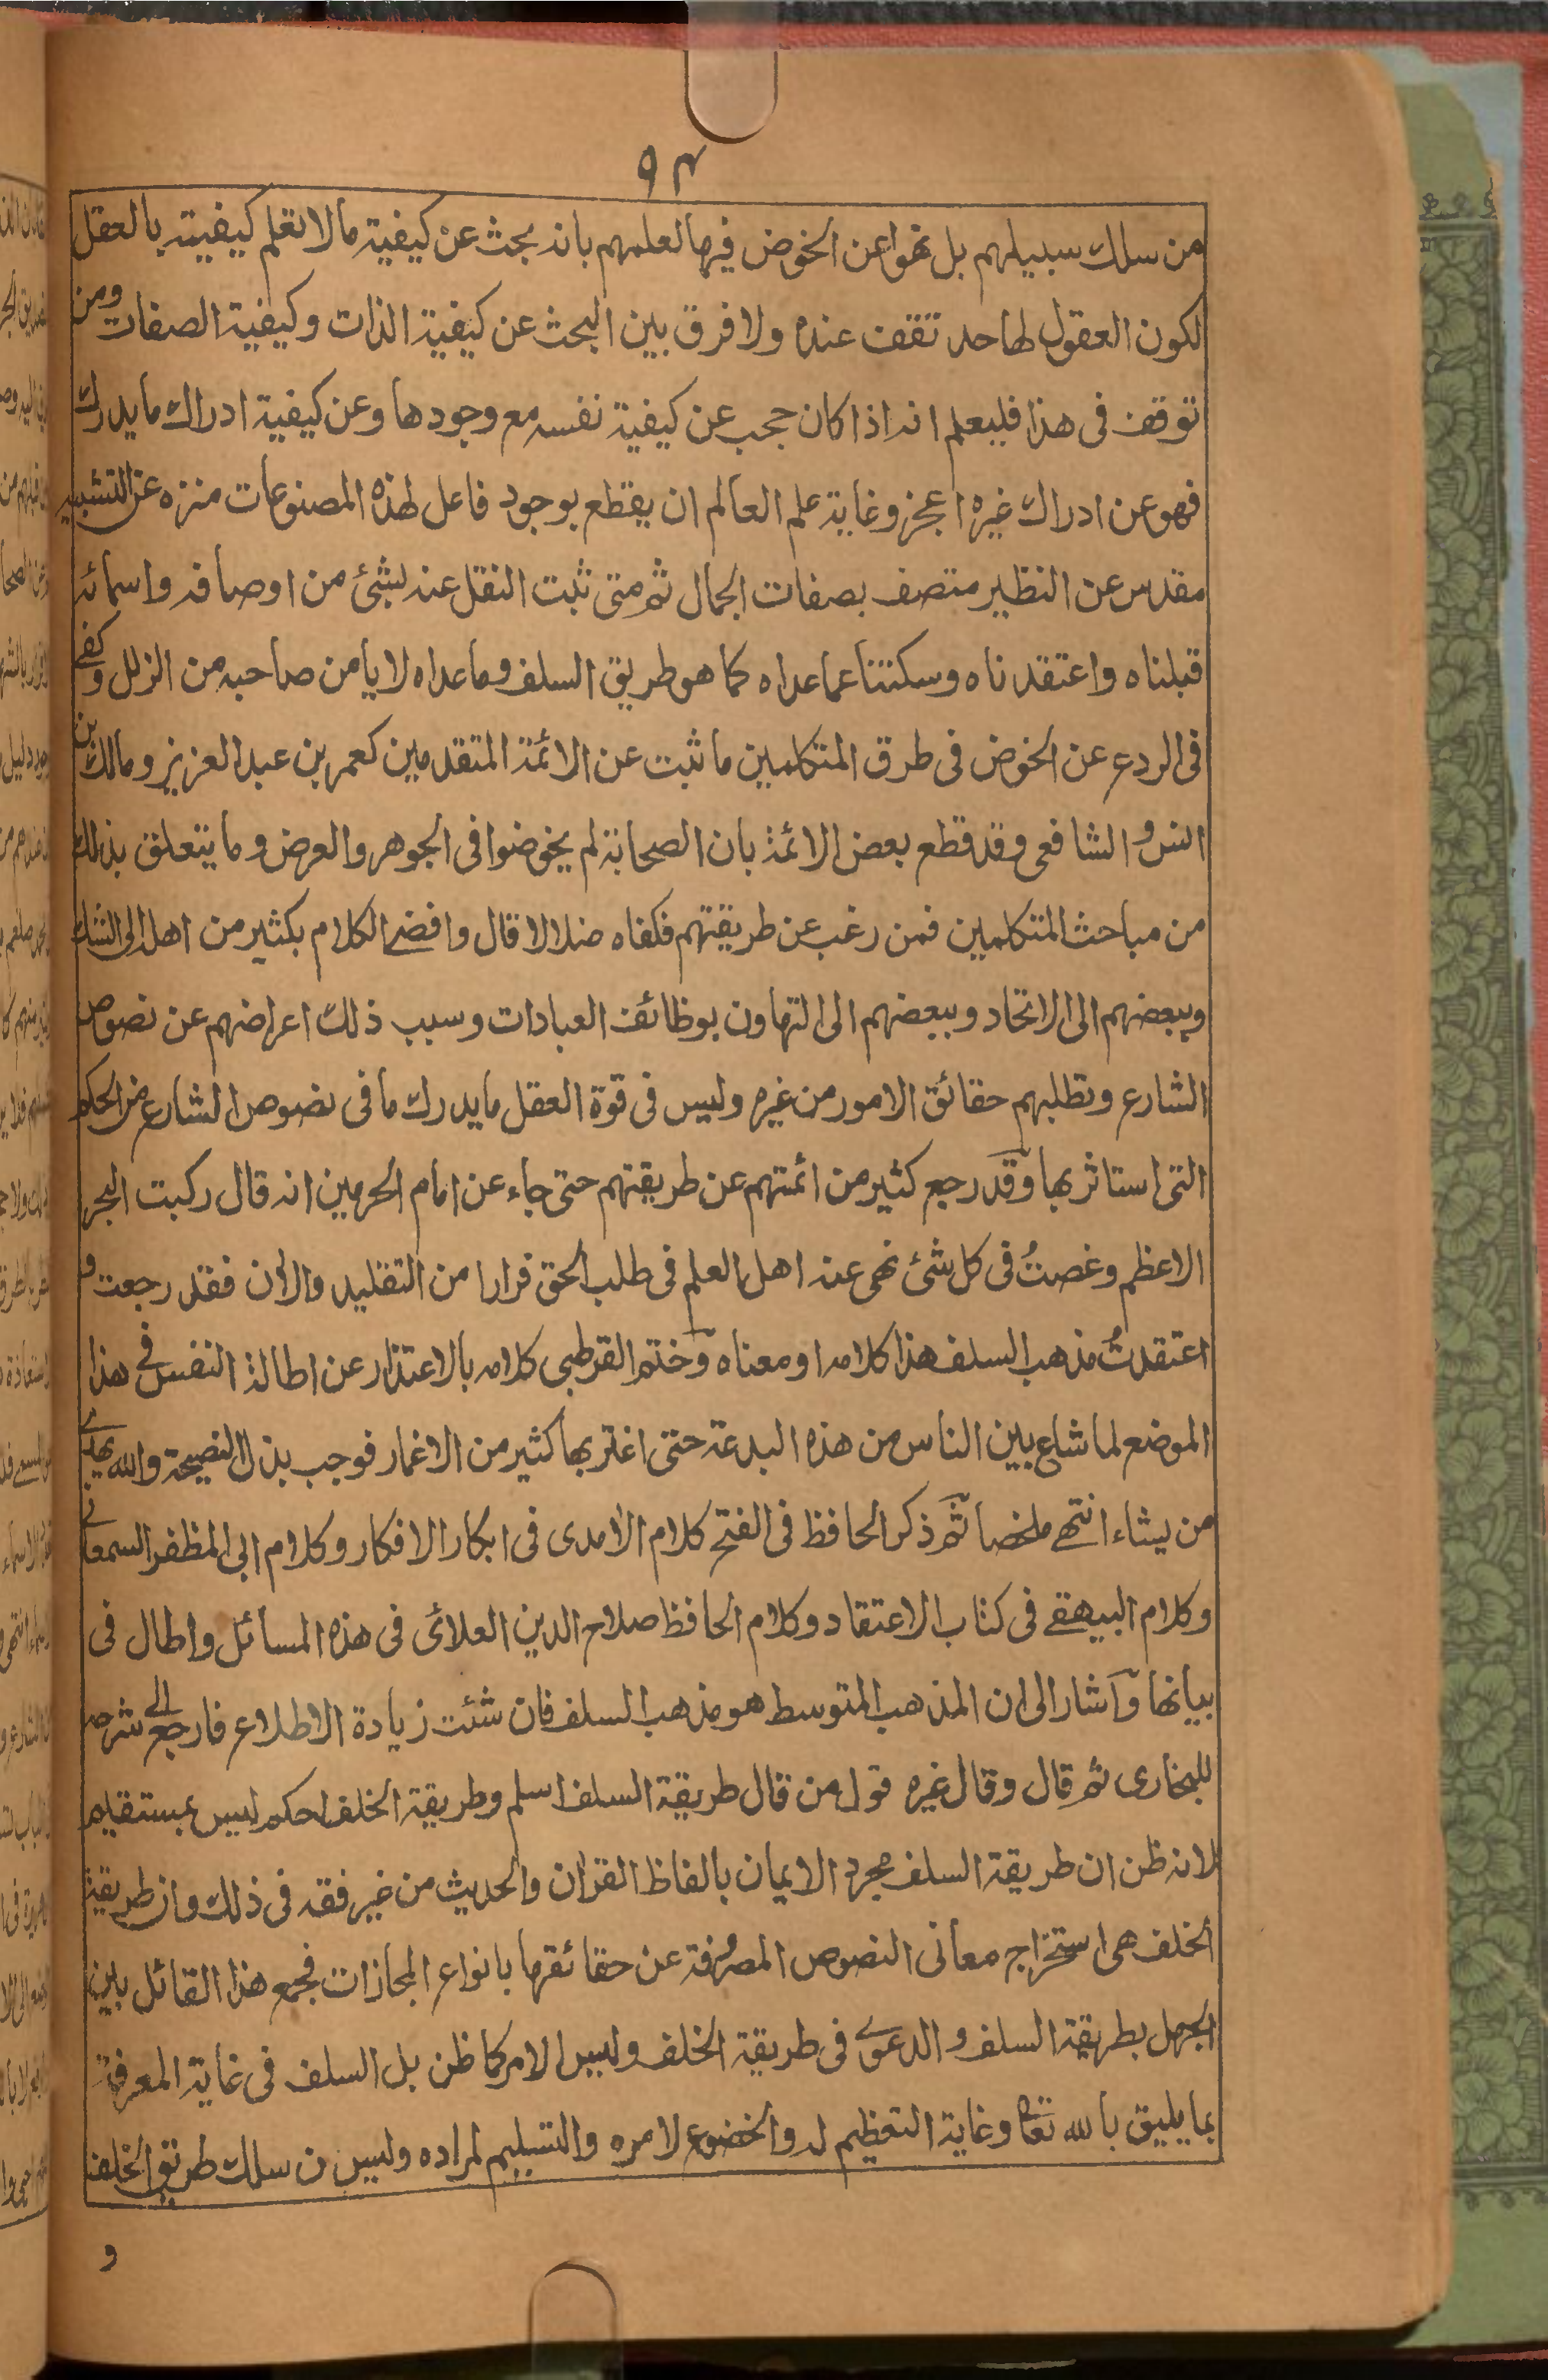 ٩٤
من سلك سبيلهم بل نهوا عن الخوض فيها لعلمهم بانه بحث عن كيفية ما لا تعلم كيفيته بالعقل
لكون العقول لها حد تقف عنده ولا فرق بين البحث عن كيفية الذات وكيفية الصفات ومن
توقف فى هذا فليعلم انه اذا كان حجب عن كيفية نفسه مع وجودها وعن كيفية ادراك ما يدرك
فهو عن ادراك غيره اعجز وغاية علم العالم ان يقطع بوجود فاعل لهذه المصنوعات منزه عن التشبيه
مقدس عن النظير متصف بصفات الجمال ثم متى ثبت النقل عنه بشئ من اوصافه واسمائه
قبلناه واعتقدناه وسكتنا عما عداه كما هو طريق السلف وما عداه لا يامن صاحبه من الزلل وكفى
فى الردع عن الخوض فى طرق المتكلمين ما ثبت عن الائمة المتقدمين كعمر بن عبد العزيز ومالك بن
انس و الشافعى وقد قطع بعض الائمة بان الصحابة لم يخوضوا فى الجوهر والعرض وما يتعلق بذلك
من مباحث المتكلمين فمن رغب عن طريقتهم فكفاه ضلالا قال وافضى الكلام بكثير من اهله الى الشك
وببعضهم الى الاتحاد وببعضهم الى التهاون بوظائف العبادات وسبب ذلك اعراضهم عن نصوص
الشارع وتطلبهم حقائق الامور من غيره وليس فى قوة العقل ما يدرك ما فى نصوص الشارع من الحكم
التى استاثر بها وقد رجع كثير من ائمتهم عن طريقتهم حتى جاء عن امام الحرمين انه قال ركبت البحر
الاعظم وغصتُ فى كل شئ نهى عنه اهل العلم فى طلب الحق فرارا من التقليد والان فقد رجعت و
اعتقدتُ مذهب السلف هذا كلامه او معناه وختم القرطبى كلامه بالاعتذار عن اطالة النفس فى هذا
الموضع لما شاع بين الناس من هذه البدعة حتى اغتر بها كثير من الاغمار فوجب بذل النصيحة والله يهدى
من يشاء انتهى ملخصا ثم ذكر الحافظ فى الفتح كلام الامدى فى ابكار الافكار وكلام ابى المظفر السمعانى
وكلام البيهقى فى كتاب الاعتقاد وكلام الحافظ صلاح الدين العلائى فى هذه المسائل واطال فى
بيانها واشار الى ان المذهب المتوسط هو مذهب السلف فان شئت زيادة الاطلاع فارجع الى شرحه
للبخارى ثم قال وقال غيره قول من قال طريقة السلف اسلم وطريقة الخلف احكم ليس بمستقيم
لانه ظن ان طريقة السلف مجرد الايمان بالفاظ القران والحديث من غير فقه فى ذلك وان طريقة
الخلف هى استخراج معانى النصوص المصروفة عن حقائقها بانواع المجازات فجمع هذا القائل بين
الجهل بطريقة السلف و الدعوى فى طريقة الخلف وليس الامر كما ظن بل السلف فى غاية المعرفة
بما يليق بالله تعالى وغاية التعظيم له والخضوع لامره والتسليم لمراده وليس من سلك طريق الخلف
و